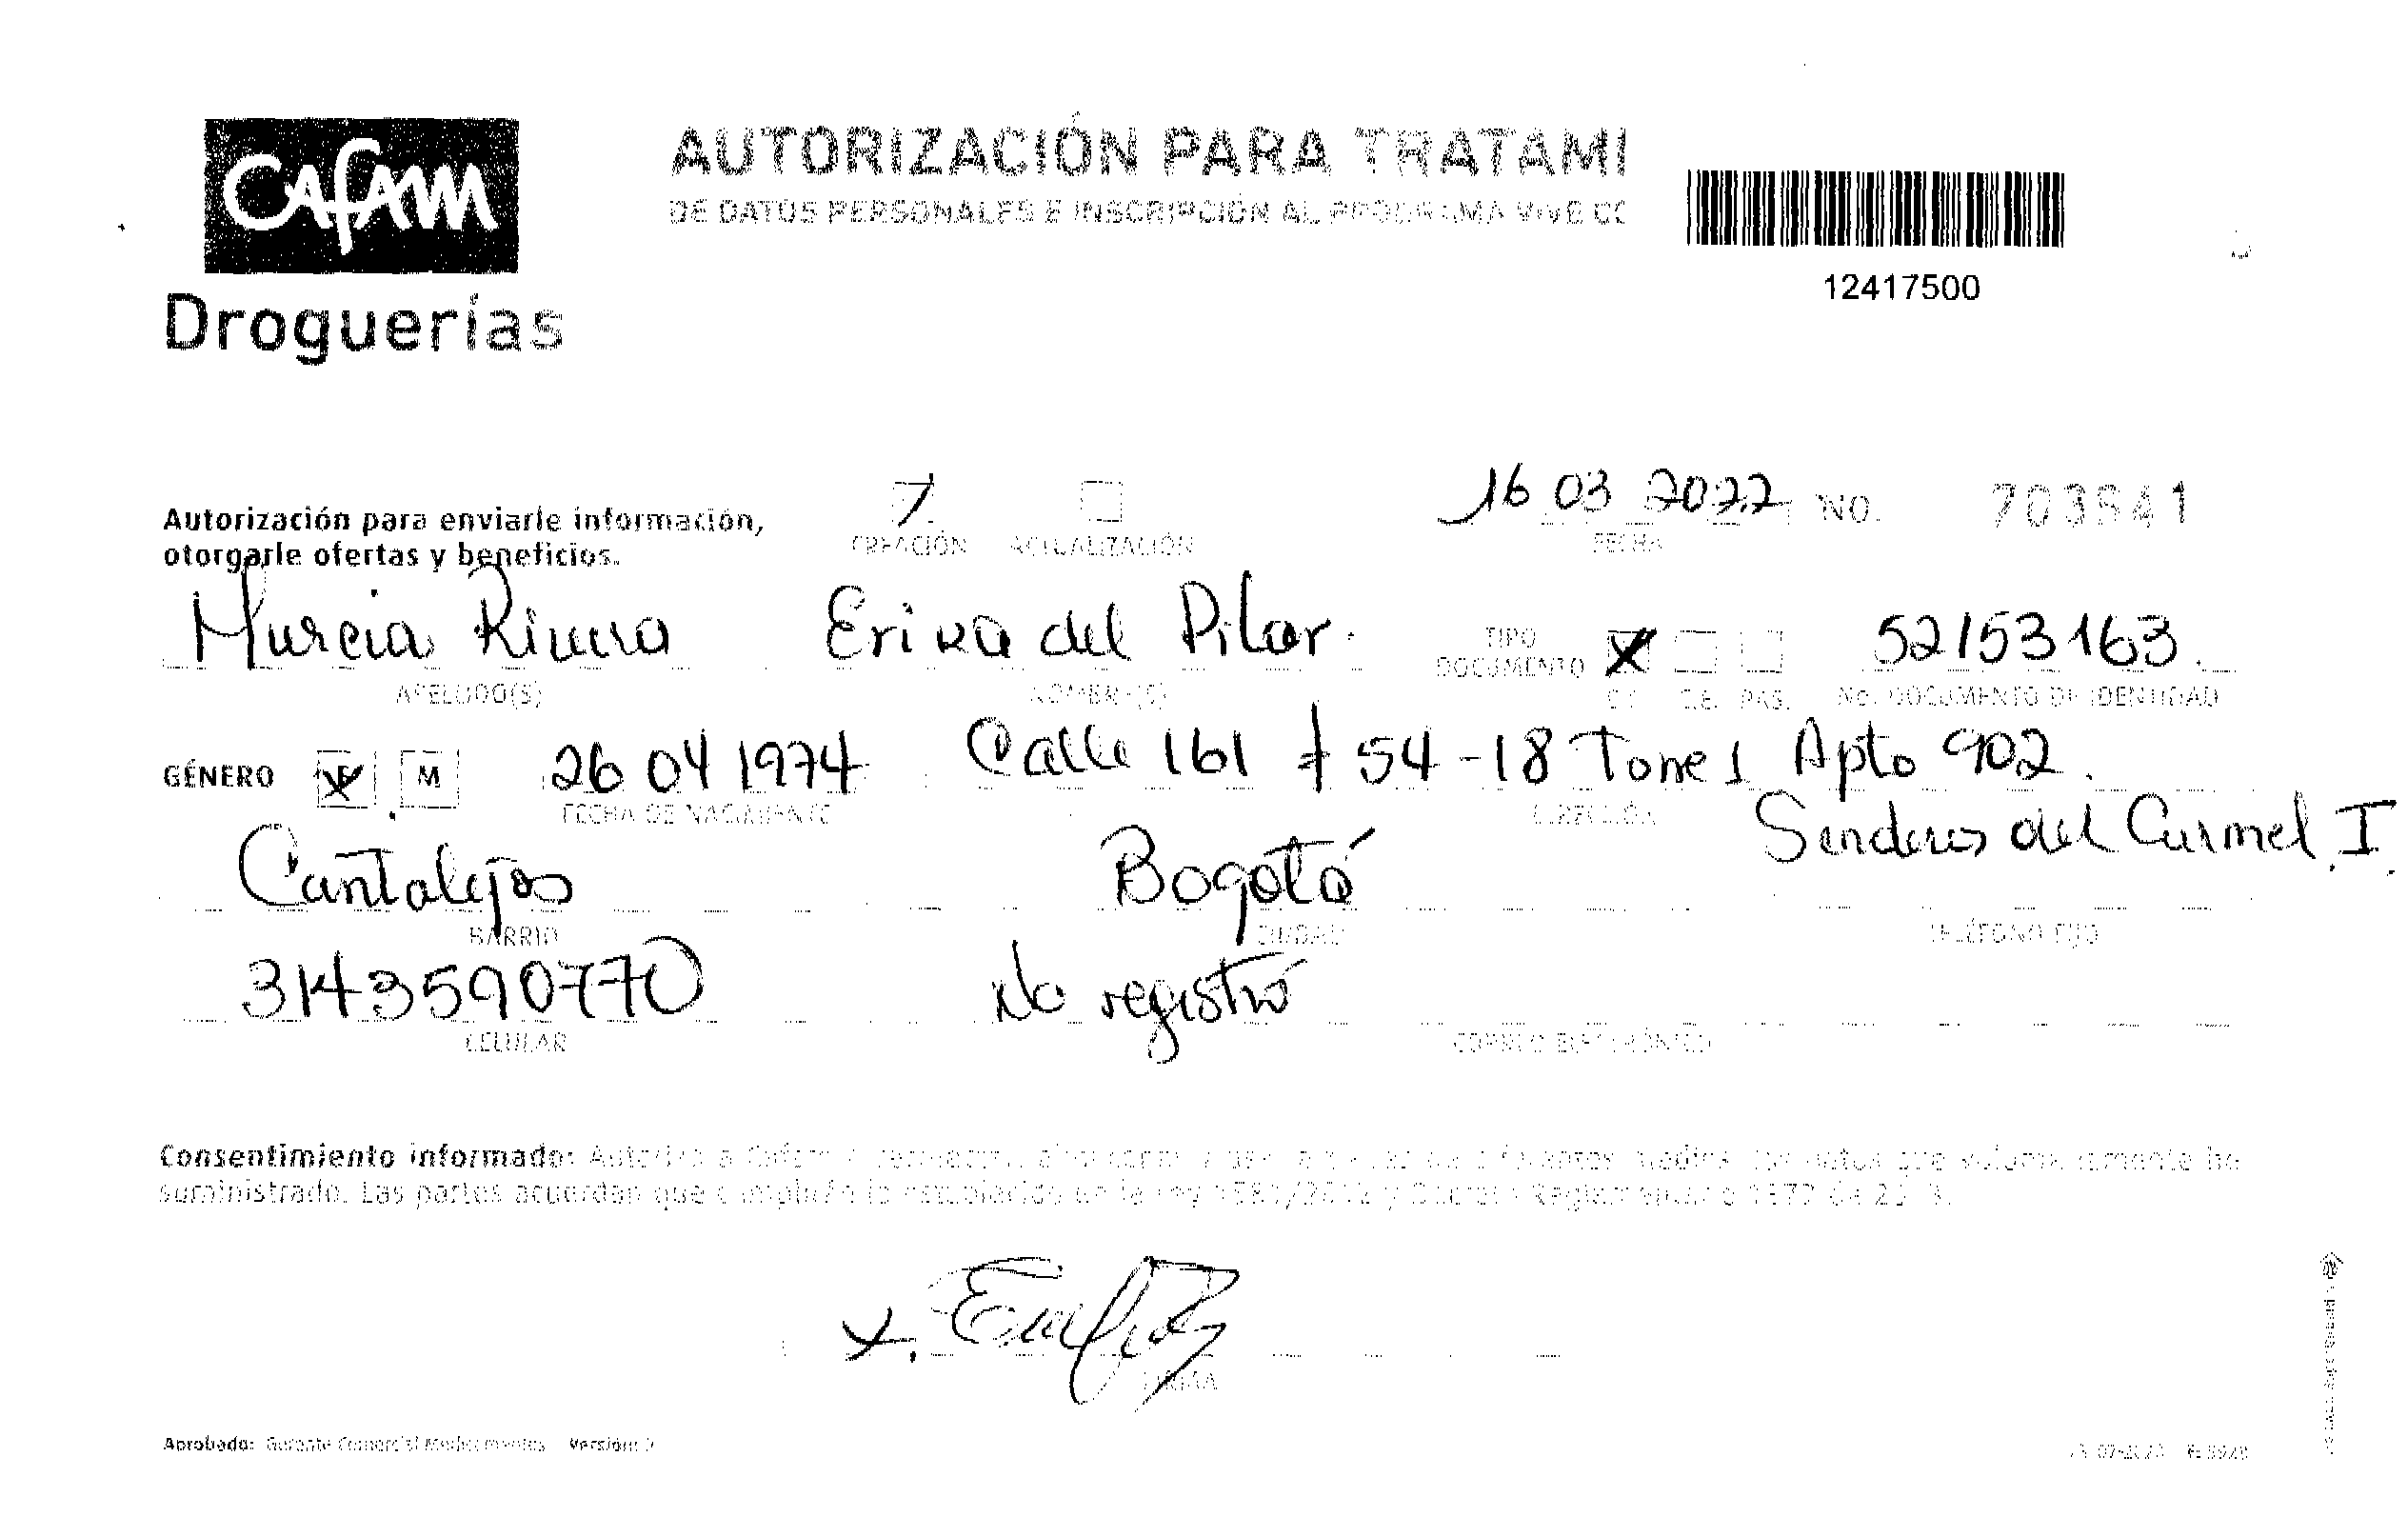 CAFAM
Droguerías
AUTORIZACIÓN PARA TRATAMI
DE DATOS PERSONALES E INSCRIPCIÓN AL PROGRAMA VIVE CO
12417500
Autorización para enviarle información,
otorgarle ofertas y beneficios.
CREACIÓN ACTUALIZACIÓN
16 03 2022 NO. 703841
FECHA
Murcia Rivera Erika del Pilar. TIPO DOCUMENTO X 52153163.
APELLIDO(S) NOMBRE(S) C.C. C.E. PAS. No. DOCUMENTO DE IDENTIDAD
GÉNERO F M 26 04 1974 Calle 161 # 54-18 Torre 1 Apto 902.
FECHA DE NACIMIENTO DIRECCIÓN Senderos del Carmel I.
Cantalejos Bogotá
BARRIO CIUDAD TELÉFONO FIJO
3143590770 No registró
CELULAR CORREO ELECTRÓNICO
Consentimiento informado: Autorizo a Cafam a medios los datos que voluntariamente he
suministrado. Las partes acuerdan que cumplirán lo establecido en la Ley 1581/2012 y Decreto Reglamentario 1377 de 2013.
X.
FIRMA
Aprobado: Gerente Comercial Medicamentos Versión: 2